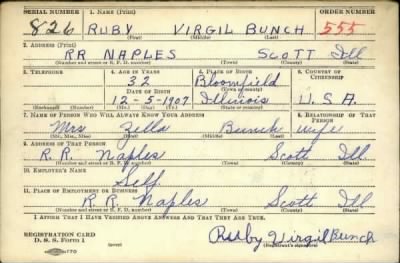 SERIAL NUMBER 1. NAME (Print) ORDER NUMBER
826 RUBY VIRGIL BUNCH 555
(First) (Middle) (Last)
2. ADDRESS (Print)
RR NAPLES SCOTT Ill
(Number and street or R. F. D. number) (Town) (County) (State)
3. TELEPHONE 4. AGE IN YEARS 5. PLACE OF BIRTH 6. COUNTRY OF CITIZENSHIP
32 Bloomfield
DATE OF BIRTH (Town or county)
12-5-1907 Illinois U.S.A.
(Exchange) (Number) (Mo.) (Day) (Yr.) (State or country)
7. NAME OF PERSON WHO WILL ALWAYS KNOW YOUR ADDRESS 8. RELATIONSHIP OF THAT PERSON
Mrs Zella Bunch wife
(Mr., Mrs., Miss) (First) (Middle) (Last)
9. ADDRESS OF THAT PERSON
R.R. Naples Scott Ill.
(Number and street or R. F. D. number) (Town) (County) (State)
10. EMPLOYER'S NAME
Self.
11. PLACE OF EMPLOYMENT OR BUSINESS
R.R. Naples Scott Ill
(Number and street or R. F. D. number) (Town) (County) (State)
I AFFIRM THAT I HAVE VERIFIED ABOVE ANSWERS AND THAT THEY ARE TRUE.
REGISTRATION CARD
D. S. S. Form 1 (over) Ruby Virgil Bunch
(Registrant's signature)